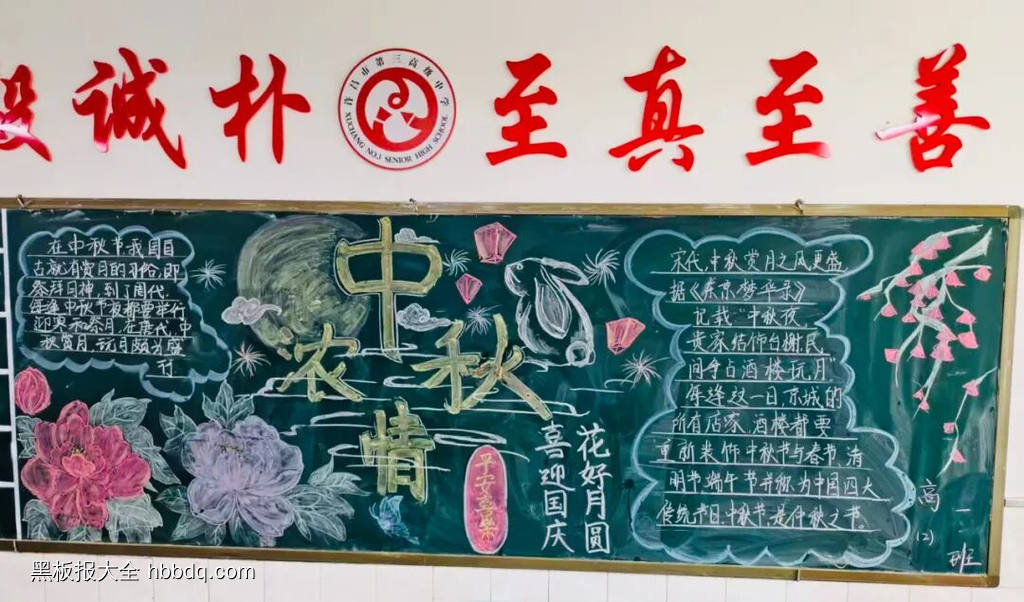 诚朴
许昌市第三高级中学
XUCHANG NO.3 SENIOR HIGH SCHOOL
至真至善
在中秋节我国自
古就有赏月的习俗,即
祭拜月神,到了周代,
每逢中秋节夜都要举行
迎寒和祭月.在唐代,中
秋赏月、玩月颇为盛
行
中秋
浓情
平安喜乐
花好月圆
喜迎国庆
宋代,中秋赏月之风更盛
据《东京梦华录》
记载"中秋夜,
贵家结饰台榭,民
间争占酒楼玩月"
每逢这一日,京城的
所有店家、酒楼都要
重新装饰中秋节与春节、清
明节、端午节并称为中国四大
传统节日.中秋节是仲秋之节。
高一
(2)
班
黑板报大全 hbbdq.com